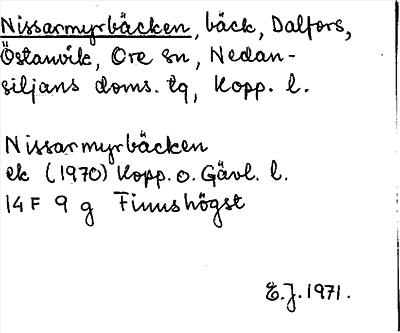 Nissarmyrbäcken, bäck, Dalfors,
Östanvik, Ore sn, Nedan-
siljans doms. tg, Kopp. l.
Nissarmyrbäcken
ek (1970) Kopp. o. Gävl. l.
14 F 9 g Finnshögst
E.J. 1971.